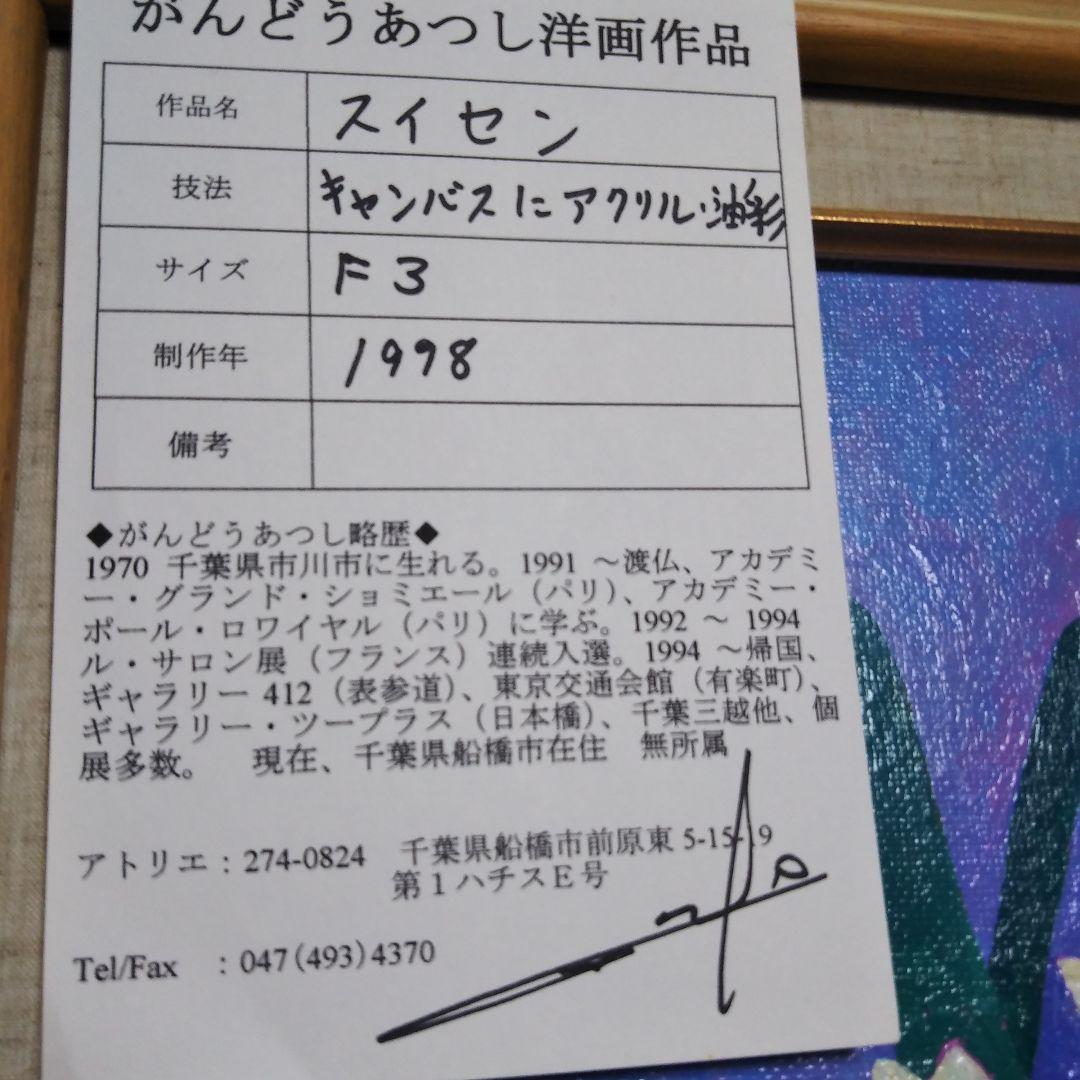 がんどうあつし洋画作品
作品名 スイセン
技法 キャンバスにアクリル・油彩
サイズ F3
制作年 1998
備考
◆がんどうあつし略歴◆
1970 千葉県市川市に生れる。1991 ～渡仏、アカデミ
ー・グランド・ショミエール（パリ）、アカデミー・
ポール・ロワイヤル（パリ）に学ぶ。1992 ～ 1994
ル・サロン展（フランス）連続入選。1994 ～帰国、
ギャラリー 412（表参道）、東京交通会館（有楽町）、
ギャラリー・ツープラス（日本橋）、千葉三越他、個
展多数。 現在、千葉県船橋市在住 無所属
アトリエ：274-0824 千葉県船橋市前原東 5-15-19
第１ハチスＥ号
Tel/Fax ：047(493)4370